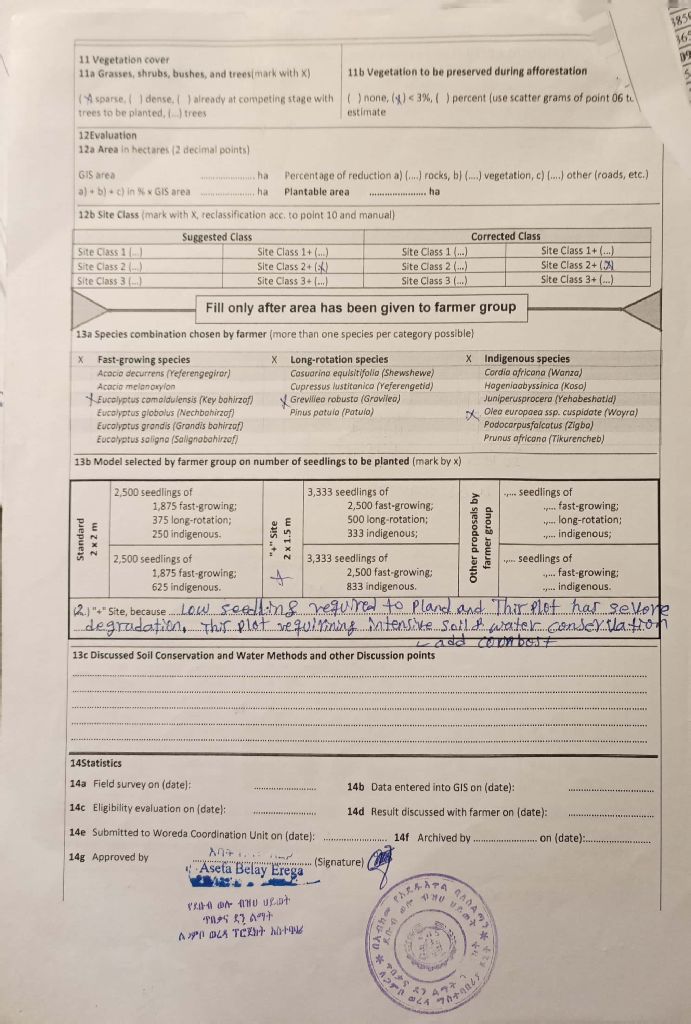 11 Vegetation cover
11a Grasses, shrubs, bushes, and trees(mark with X)
(X) sparse, ( ) dense, ( ) already at competing stage with
trees to be planted, (...) trees
11b Vegetation to be preserved during afforestation
( ) none, (x) < 3%, ( ) percent (use scatter grams of point 06 to
estimate
12Evaluation
12a Area in hectares (2 decimal points)
GIS area .................... ha Percentage of reduction a) (....) rocks, b) (....) vegetation, c) (....) other (roads, etc.)
a) + b) + c) in % x GIS area .................... ha Plantable area .................... ha
12b Site Class (mark with X, reclassification acc. to point 10 and manual)
Suggested Class Corrected Class
Site Class 1 (...) Site Class 1+ (...) Site Class 1 (...) Site Class 1+ (...)
Site Class 2 (...) Site Class 2+ (x) Site Class 2 (...) Site Class 2+ (x)
Site Class 3 (...) Site Class 3+ (...) Site Class 3 (...) Site Class 3+ (...)
Fill only after area has been given to farmer group
13a Species combination chosen by farmer (more than one species per category possible)
X Fast-growing species X Long-rotation species X Indigenous species
Acacia decurrens (Yeferengegirar) Casuarina equisitifolia (Shewshewe) Cordia africana (Wanza)
Acacia melanoxylon Cupressus lustitanica (Yeferengetid) Hageniaabyssinica (Koso)
X Eucalyptus camaldulensis (Key bahirzaf) X Grevillea robusta (Gravilea) Juniperusprocera (Yehabeshatid)
Eucalyptus globolus (Nechbahirzaf) Pinus patula (Patula) X Olea europaea ssp. cuspidate (Woyra)
Eucalyptus grandis (Grandis bahirzaf) Podocarpusfalcatus (Zigba)
Eucalyptus saligna (Salignabahirzaf) Prunus africana (Tikurencheb)
13b Model selected by farmer group on number of seedlings to be planted (mark by x)
Standard
2 x 2 m
2,500 seedlings of
1,875 fast-growing;
375 long-rotation;
250 indigenous.
2,500 seedlings of
1,875 fast-growing;
625 indigenous.
"+" Site
2 x 1.5 m
x
3,333 seedlings of
2,500 fast-growing;
500 long-rotation;
333 indigenous;
3,333 seedlings of
2,500 fast-growing;
833 indigenous.
Other proposals by
farmer group
.,... seedlings of
.,... fast-growing;
.,... long-rotation;
.,... indigenous;
.,... seedlings of
.,... fast-growing;
.,... indigenous.
"+" Site, because Low seedling required to Pland and This Plot has severe
degradation, This plot requirning intensive soil & water conservation
add combost
13c Discussed Soil Conservation and Water Methods and other Discussion points
14Statistics
14a Field survey on (date): ....................
14b Data entered into GIS on (date): ....................
14c Eligibility evaluation on (date): ....................
14d Result discussed with farmer on (date): ....................
14e Submitted to Woreda Coordination Unit on (date): .................... 14f Archived by .................... on (date):....................
14g Approved by .................... (Signature)
Asefa Belay Erega
የደቡብ ወሎ ብዝሀ ህይወት
ጥበቃና ደን ልማት